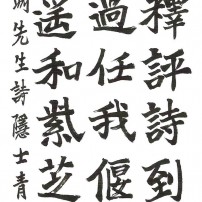 釋評詩到
過任我偃
遥和紫芝
先生詩隱士青